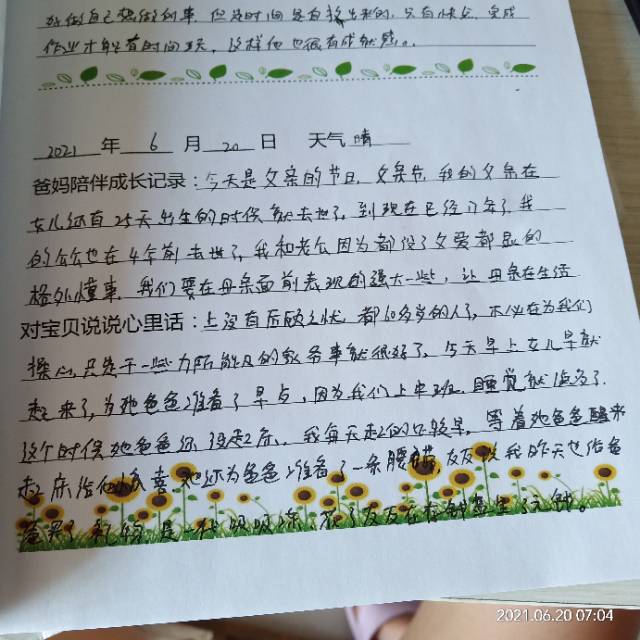 我做自己想做的事，但是时间是自己挤出来的，只有快点完成
作业才能有时间玩，这样他也很有成就感。
2021 年 6 月 20 日 天气 晴
爸妈陪伴成长记录：今天是父亲的节日，父亲节，我的父亲在
女儿还有25天出生的时候就去世了，到现在已经 年了，我
的公公也在4年前去世了，我和老公因为都没了父爱都显的
格外懂事，我们要在母亲面前表现的强大一些，让母亲在生活
对宝贝说说心里话：上没有后顾之忧，都60多岁的人了，不必在为我们
操心，只先干一些力所能及的家务事就很好了，今天早上女儿早就
起来了，为她爸爸准备了早点，因为我们上中班，睡觉就
这个时候她爸爸还没起床，我每天起的比较早，等着她爸爸醒来
起床给他惊喜，她还为爸爸准备了一条腰带，友友说我昨天也给爸
爸买了礼物是一 ，花了友友在存钱 元钱。
2021.06.20 07:04